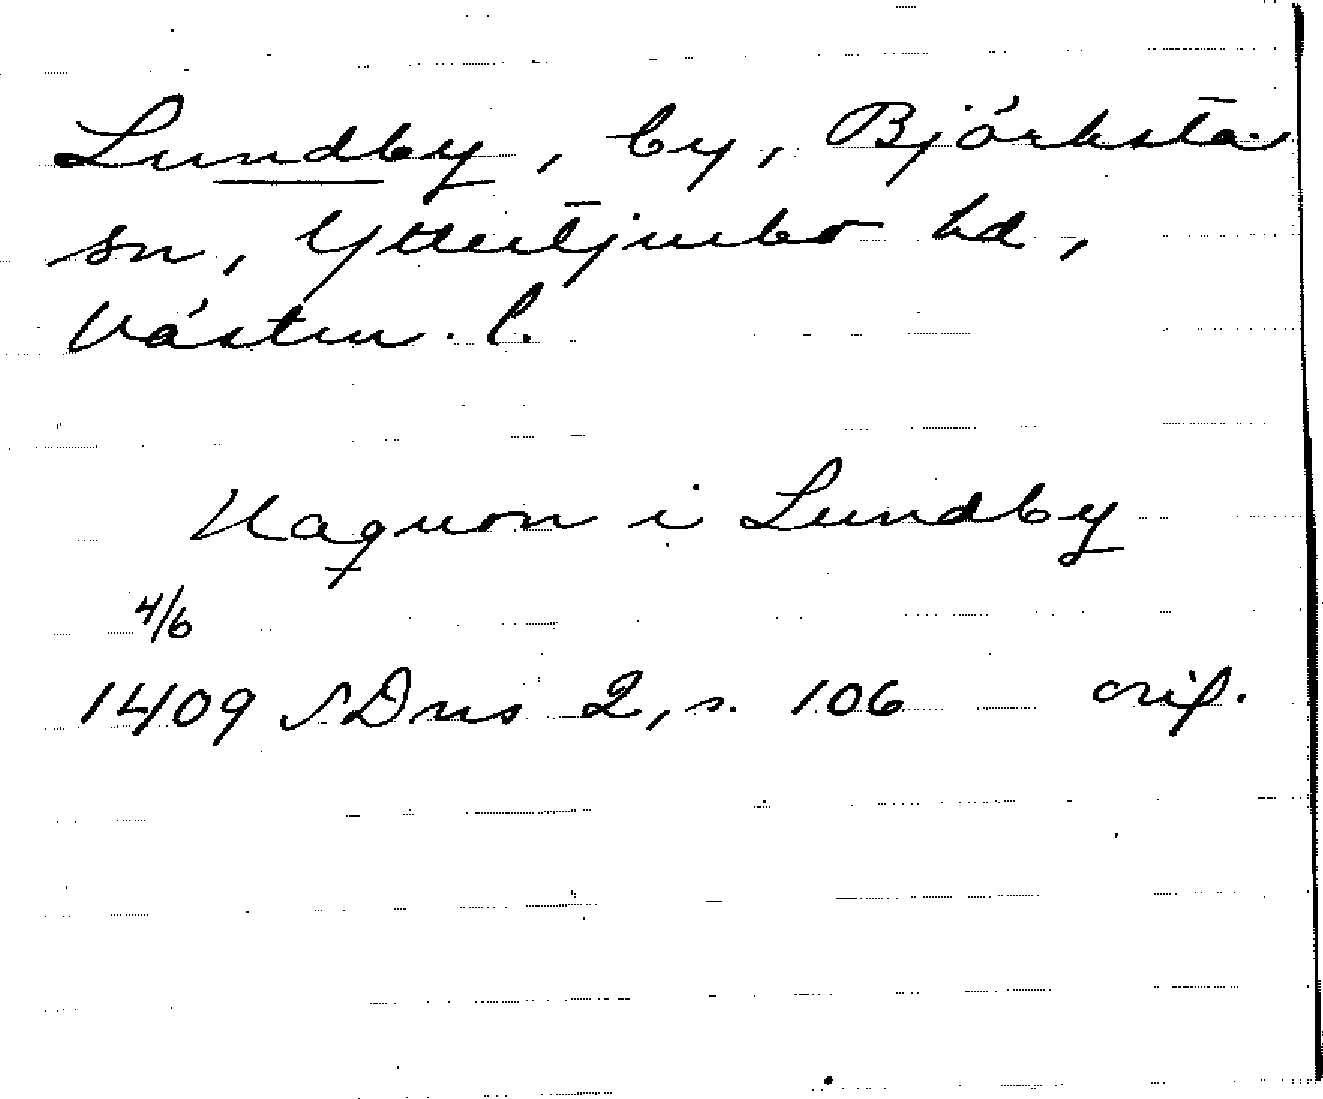 Lundby, by, Björksta
sn, Yttertjurbo hd,
Västm. l.
Haquon i Lundby
4/6
1409 SDns 2, s. 106 orig.